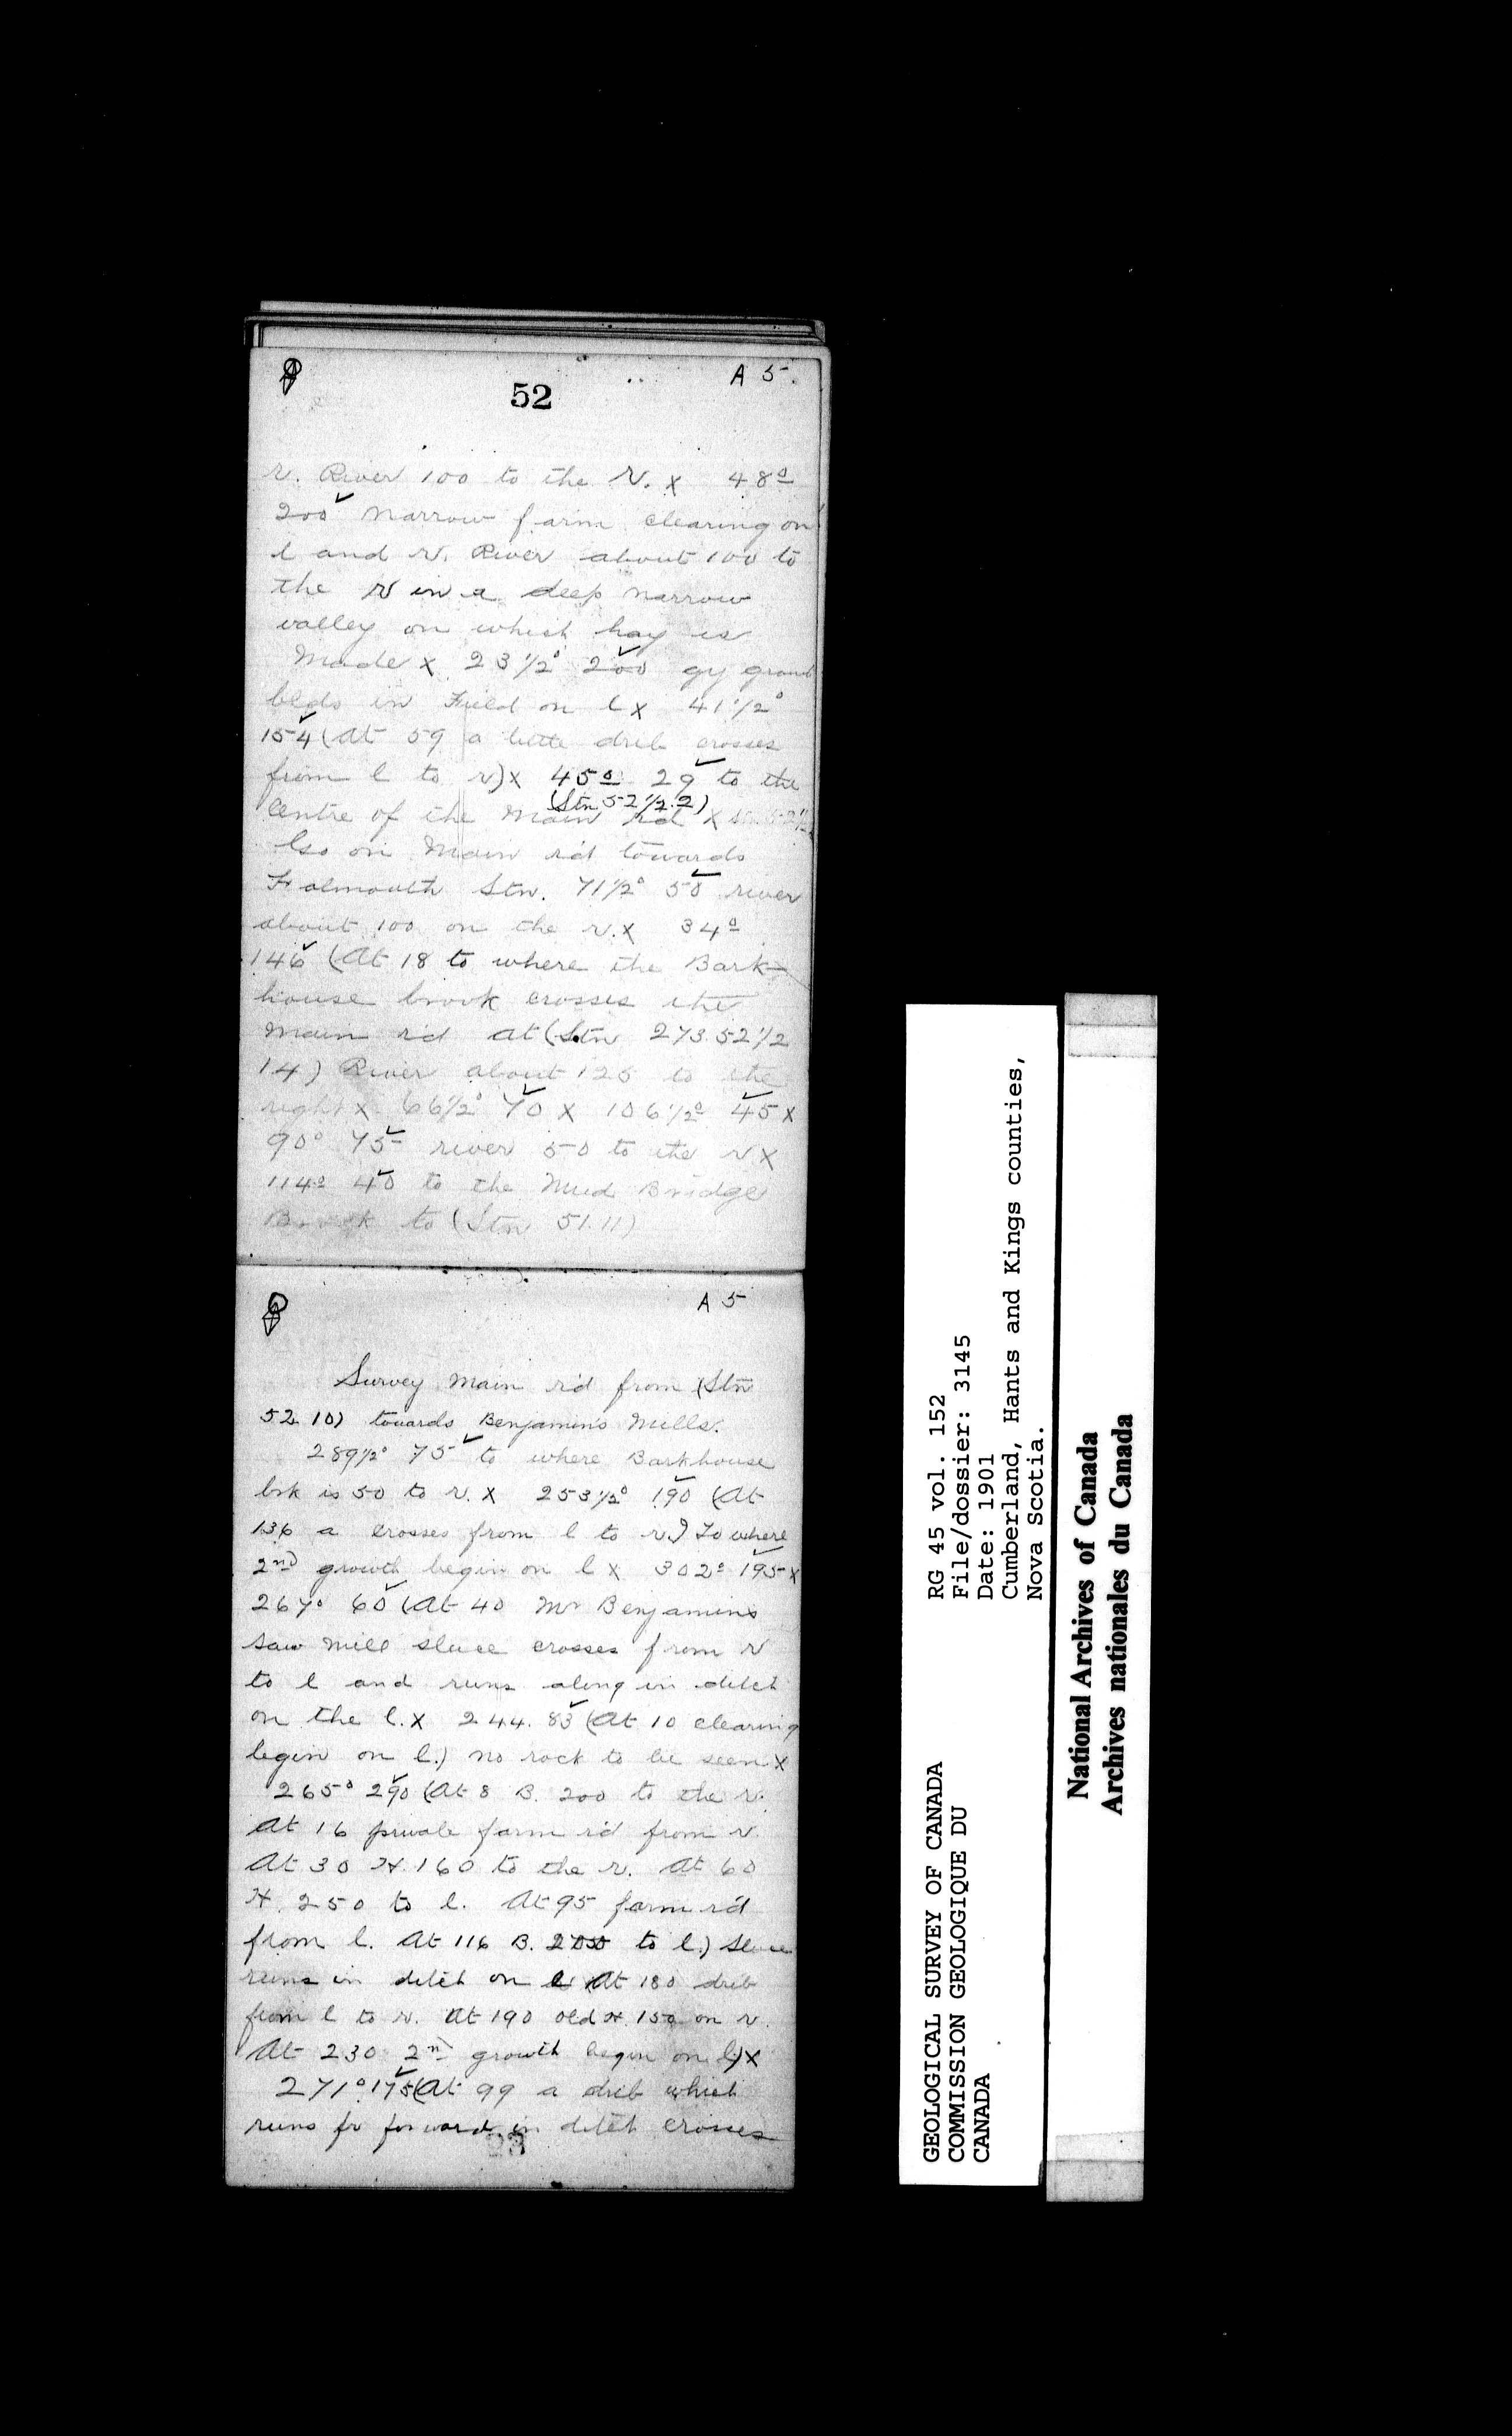 A 5.
52
r. River 100 to the r. x 48°
200 narrow farm clearing on
l and r. River about 100 to
the r in a deep narrow
valley on which hay is
made x 23 1/2° 200 gy
blds in Field on l x 41 1/2°
154 (At 59 a little drib crosses
from l to r) x 45° 29 to the
(Stn 52 1/2.2)
centre of the main rd x
Also on main r'd towards
Falmouth Stn. 71 1/2° 50 river
about 100 on the r. x 34°
146 (At 18 to where the Bark-
house brook crosses the
main r'd at (Stn 273.52 1/2
14) River about 125 to the
right x 66 1/2° 70 x 106 1/2° 45 x
90° 75 river 50 to the r x
114° 40 to the Mud Bridge
Brook to (Stn 51.11)
A 5
Survey main r'd from (Stn
52.10) towards Benjamins Mills.
289 1/2° 75 to where Barkhouse
brk is 50 to r. x 253 1/2° 190 (At
136 a crosses from l to r.) To where
2nd growth begin on l x 302° 195 x
267° 60 (At 40 Mr Benjamins
saw mill sluce crosses from r
to l and runs along in ditch
on the l. x 244. 83 (At 10 clearing
begin on l.) no rock to be seen x
265° 290 (At 8 B. 200 to the r.
At 16 private farm r'd from r.
At 30 H. 160 to the r. At 60
H. 250 to l. At 95 farm r'd
from l. At 116 B. to l.) Sluce
runs in ditch on l (At 180 drib
from l to r. At 190 old H. 150 on r.
At 230 2nd growth begin on l) x
271° 175 (At 99 a drib which
runs fr forward in ditch crosses
23
GEOLOGICAL SURVEY OF CANADA
COMMISSION GEOLOGIQUE DU
CANADA
RG 45 vol. 152
File/dossier: 3145
Date: 1901
Cumberland, Hants and Kings counties,
Nova Scotia.
National Archives of Canada
Archives nationales du Canada